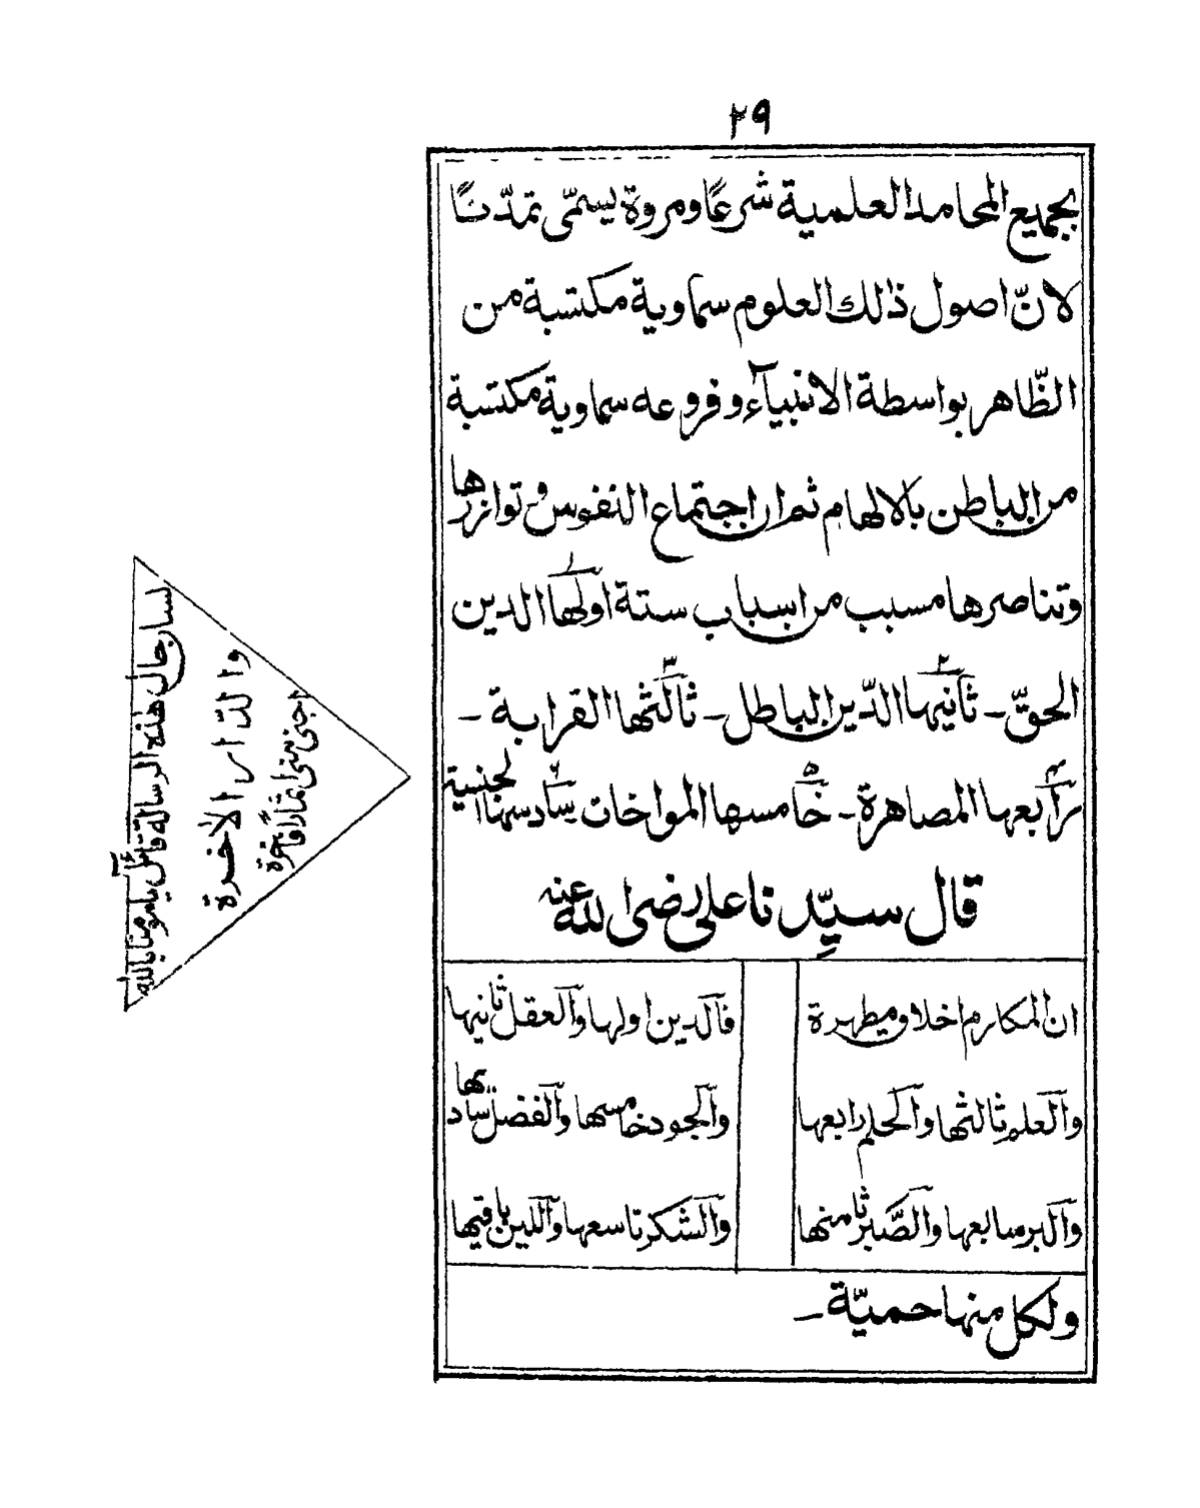 ٢٩
بجميع المحامد العلمية شرعًا ومروة يسمّى تمدّنًا
لانّ اصول ذالك العلوم سماوية مكتسبة من
الظّاهر بواسطة الانبيآء وفروعه سماوية مكتسبة
من الباطن بالالهام ثم ان اجتماع النفوس وتوازرها
وتناصرها مسبب من اسباب ستة اولها١ الدين
الحقّ - ثانيها٢ الدّين الباطل - ثالثها٣ القرابة -
رابعها٤ المصاهرة - خامسها٥ المواخات سادسها٦ الجنسية
قال سيّدنا علي رضى الله عنه
ان المكارم اخلاق مطهرة فآلدين اولها وآلعقل ثانيها
وآلعلم ثالثها وآلحلم رابعها وآلجود خامسها وآلفضل سادسها
وآلبر سابعها وآلصّبر ثامنها وآلشكر تاسعها وآللين باقيها
ولكل منها حميّة -
لسان حال هذه الرسالة قائل يا مؤمنا بالله
والدار الاخرة
اجنى منى اثمارًا فاخرة